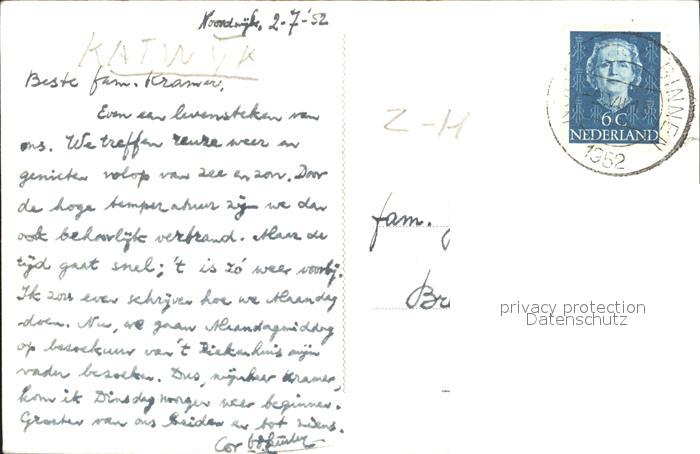 Noordwijk, 2-7-'52
KATWYK
Beste fam. Kramer,
Even een levensteken van
ons. We treffen reuze weer en
genieten volop van zee en zon. Door
de hoge temperatuur zijn we dan
ook behoorlijk verbrand. Maar de
tijd gaat snel; 't is zó weer voorbij.
Ik zou even schrijven hoe we Maandag
doen. Nu, we gaan Maandagmiddag
op bezoekuur van 't Ziekenhuis mijn
vader bezoeken. Dus, mijnheer Kramer,
kom ik Dinsdagmorgen weer beginnen.
Groeten van ons beiden en tot ziens.
Cor
Z-H
6 C
NEDERLAND
BINNEN
1952
fam.
Br
privacy protection
Datenschutz